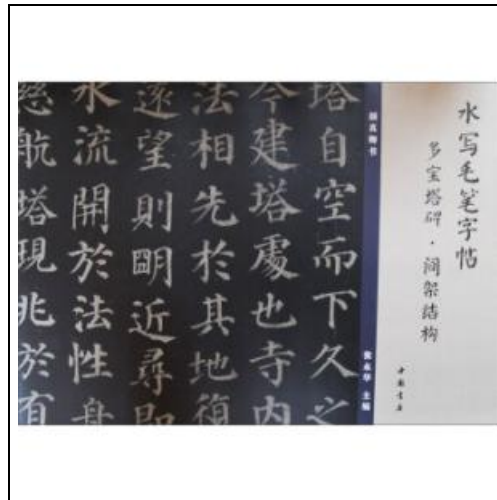 水写毛笔字帖
多宝塔碑·间架结构
中国书店
颜真卿书
张永华 主编
塔自空而下久之
今建塔處也寺内
法相先於其地復
遂望則明近尋即
水流開於法性舟
慈航塔現兆於有